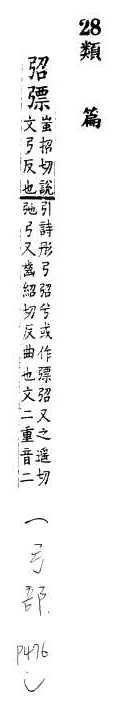 28類篇
弨
蚩招切說
文弓反也
引詩彤弓弨兮或作弨又之遥切
弛弓又齒紹切反曲也文二重音二
一弓部.
P476